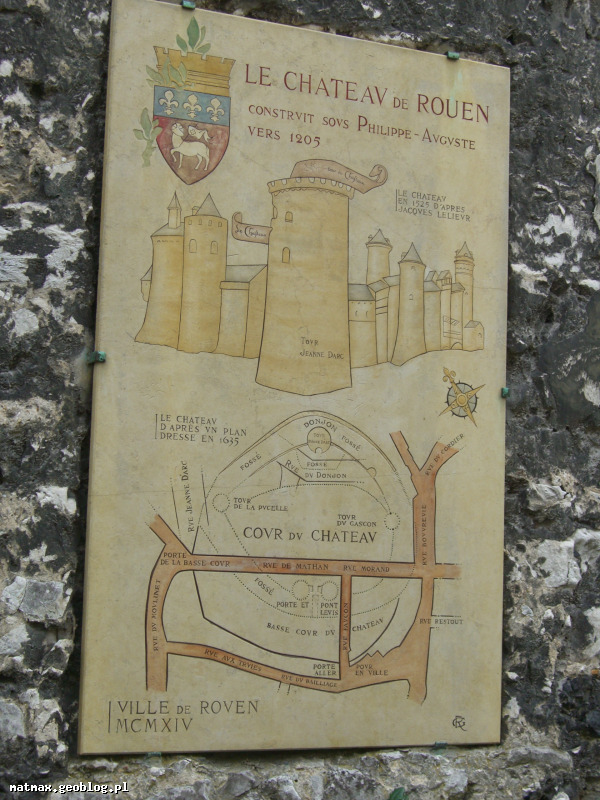 LE CHATEAV DE ROUEN
CONSTRVIT SOVS PHILIPPE-AVGVSTE
VERS 1205
LE CHATEAV
EN 1525 D'APRÈS
JACQVES LELIEVR
TOVR
JEANNE DARC
LE CHATEAV
D'APRÈS VN PLAN
DRESSE EN 1635
DONJON
FOSSÉ
FOSSÉ
FOSSE
RVE DV DONJON
RVE JEANNE DARC
TOVR
DE LA PVCELLE
TOVR
DV GASCON
COVR DV CHATEAV
RVE DV CORDIER
RVE BOVVREVIL
PORTE
DE LA BASSE COVR
RVE DE MATHAN
RVE MORAND
FOSSÉ
PORTE ET
PONT
LEVIS
BASSE COVR DV CHATEAV
RVE FAVCON
RVE RESTOUT
RVE AVX JVIFS
RVE DV BAILLIAGE
PORTE
ALLER
POVR
EN VILLE
VILLE DE ROVEN
MCMXIV
matmax.geoblog.pl